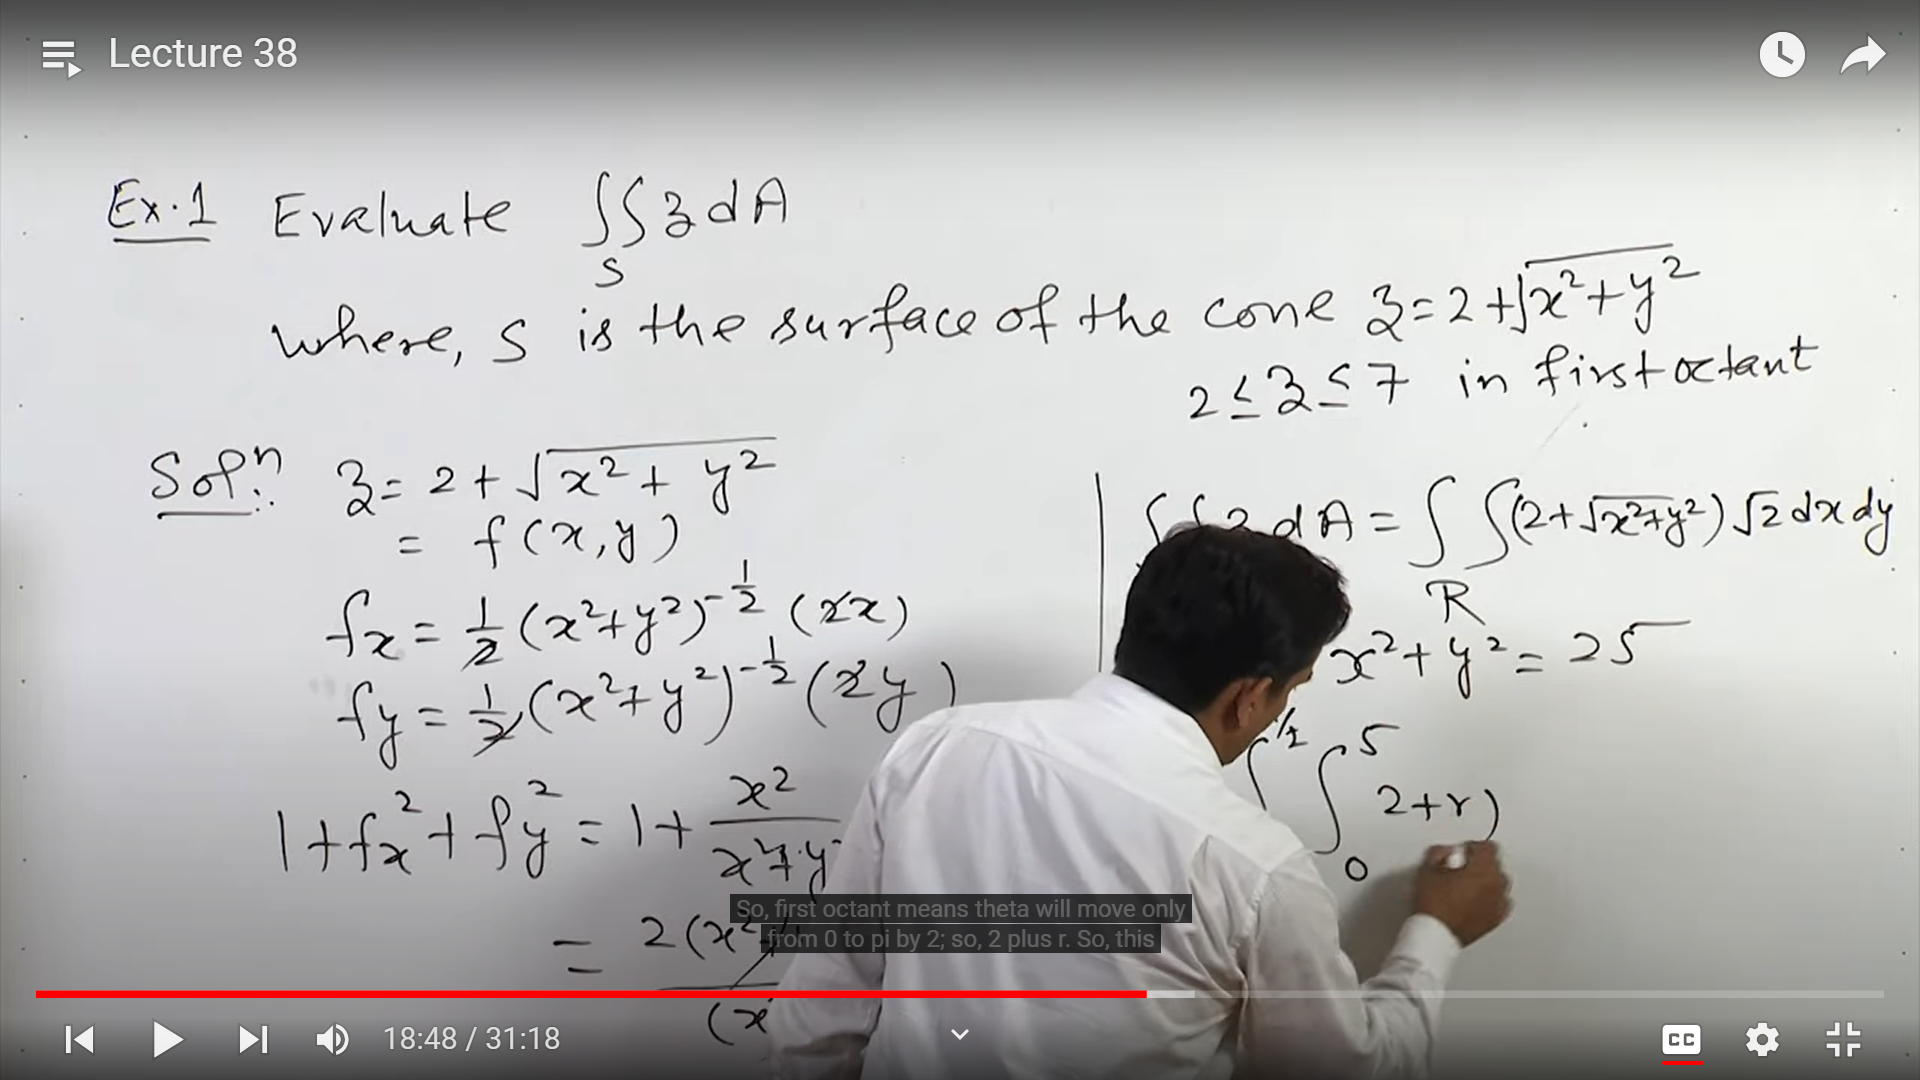 Lecture 38
Ex.1 Evaluate ∫∫ z dA
S
where, S is the surface of the cone z = 2 + √x² + y²
2 ≤ z ≤ 7 in first octant
Solⁿ: z = 2 + √x² + y²
= f(x, y)
fx = 1/2 (x² + y²)^-1/2 (2x)
fy = 1/2 (x² + y²)^-1/2 (2y)
1 + fx² + fy² = 1 + x²/x² + y²
= 2(x²
(x
dA = ∫∫ (2 + √x² + y²) √2 dx dy
R
x² + y² = 25
∫ ∫ 5 2 + r)
0
So, first octant means theta will move only
from 0 to pi by 2; so, 2 plus r. So, this
18:48 / 31:18
CC